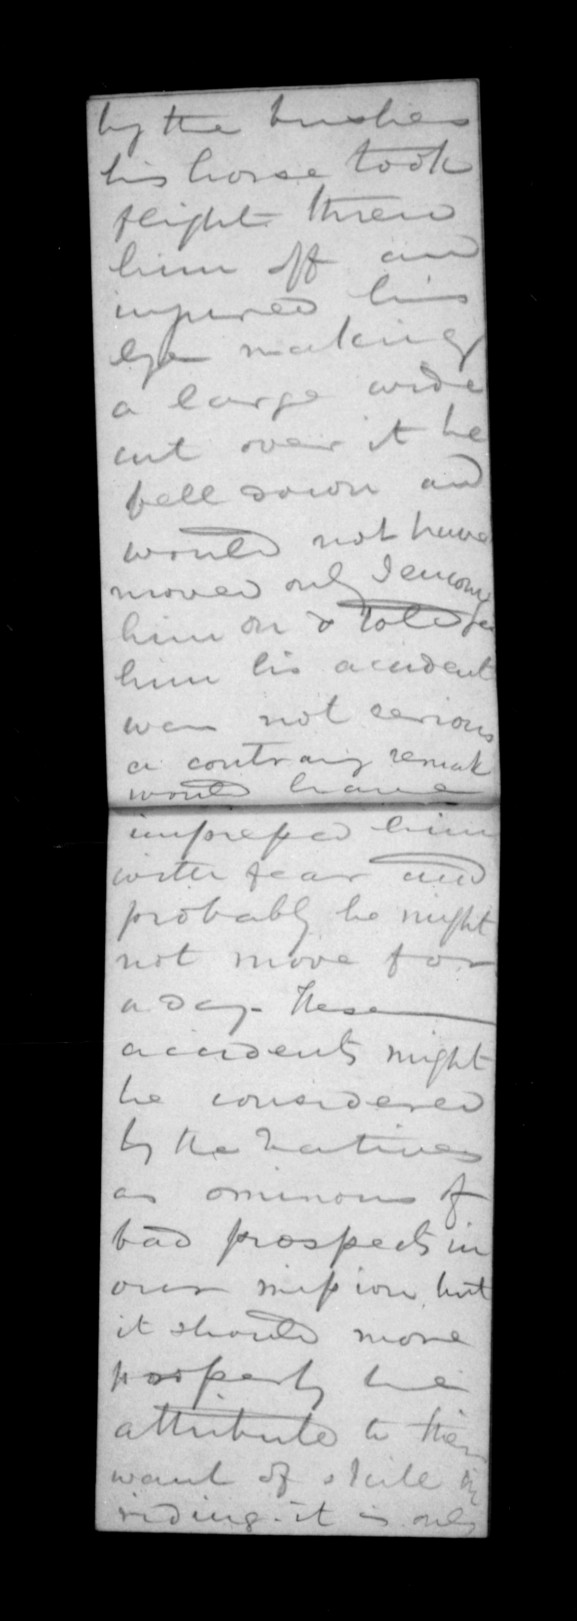 by the bushes
his horse took
flight threw
him off and
injured his
eye making
a large wide
cut over it he
fell down and
would not have
moved only I encourg
him on & told
him his accident
was not serious
a contrary remak
would have
impressed him
with fear and
probably he might
not move for
a day - these
accidents might
be considered
by the natives
as ominous of
bad prospects in
our mission but
it should more
properly be
attributed to their
want of skill in
riding - it is only